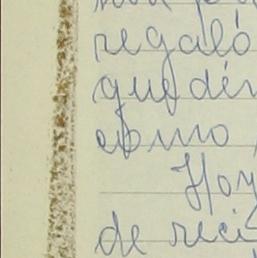 regaló
que
como
Hoy
de reci